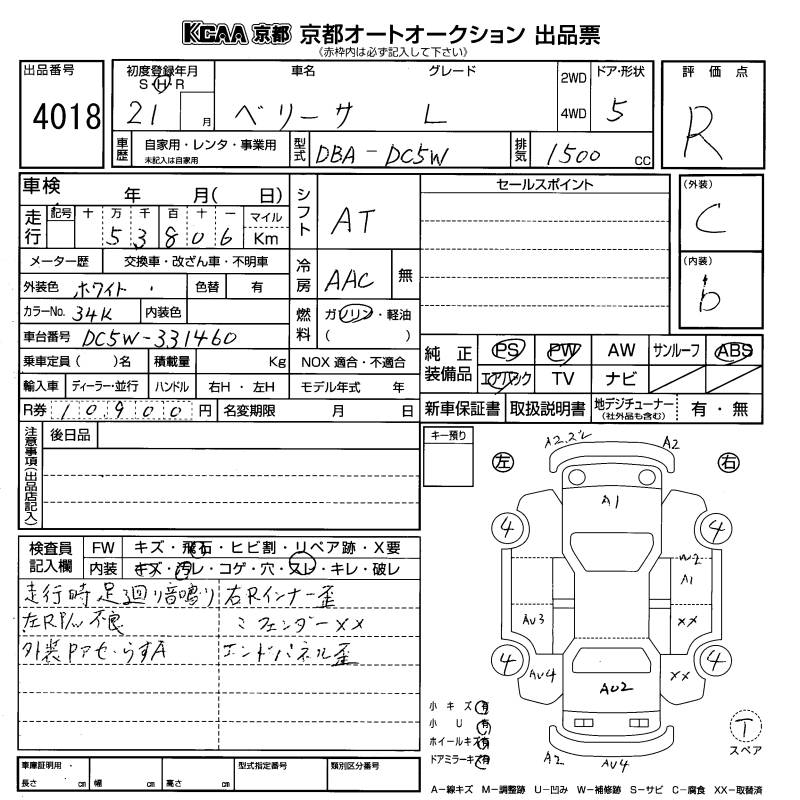 KCAA 京都 京都オートオークション 出品票
《赤枠内は必ず記入して下さい》
出品番号 4018
初度登録年月 S H R 21 月
車名 ベリーサ
グレード L
2WD 4WD
ドア・形状 5
評価点 R
車歴 自家用・レンタ・事業用 未記入は自家用
型式 DBA-DC5W
排気 1500 CC
車検 年 月( 日)
シフト AT
セールスポイント
(外装) C
走行 記号 十 万 千 百 十 一 マイル Km
5 3 8 0 6
メーター歴 交換車・改ざん車・不明車
冷房 AAC 無
(内装) b
外装色 ホワイト 色替 有
カラーNo. 34K 内装色
燃料 ガソリン・軽油 ( )
車台番号 DC5W-331460
純正装備品 PS PW AW サンルーフ ABS
エアバック TV ナビ
乗車定員( )名 積載量 Kg NOX適合・不適合
輸入車 ディーラー・並行 ハンドル 右H・左H モデル年式 年
R券 10900 円 名変期限 月 日
新車保証書 取扱説明書 地デジチューナー (社外品も含む) 有・無
注意事項(出品店記入) 後日品
キー預り
A2.ズレ A2
左 右
A1
4 4
W2
A1
AU3 XX
4 4
AU4 XX
AU2
A2 AU4
検査員記入欄 FW キズ・飛石・ヒビ割・リペア跡・X要
内装 キズ・汚レ・コゲ・穴・スレ・キレ・破レ
走行時足廻り音鳴り 右Rインナー歪
左RP/W不良 〃フェンダーXX
外装PアセうすA エンドパネル歪
小キズ 有
小U 有
ホイールキズ 有
ドアミラーキズ 有
T スペア
車庫証明用 長さ cm 幅 cm 高さ cm
型式指定番号 類別区分番号
A-線キズ M-調整跡 U-凹み W-補修跡 S-サビ C-腐食 XX-取替済